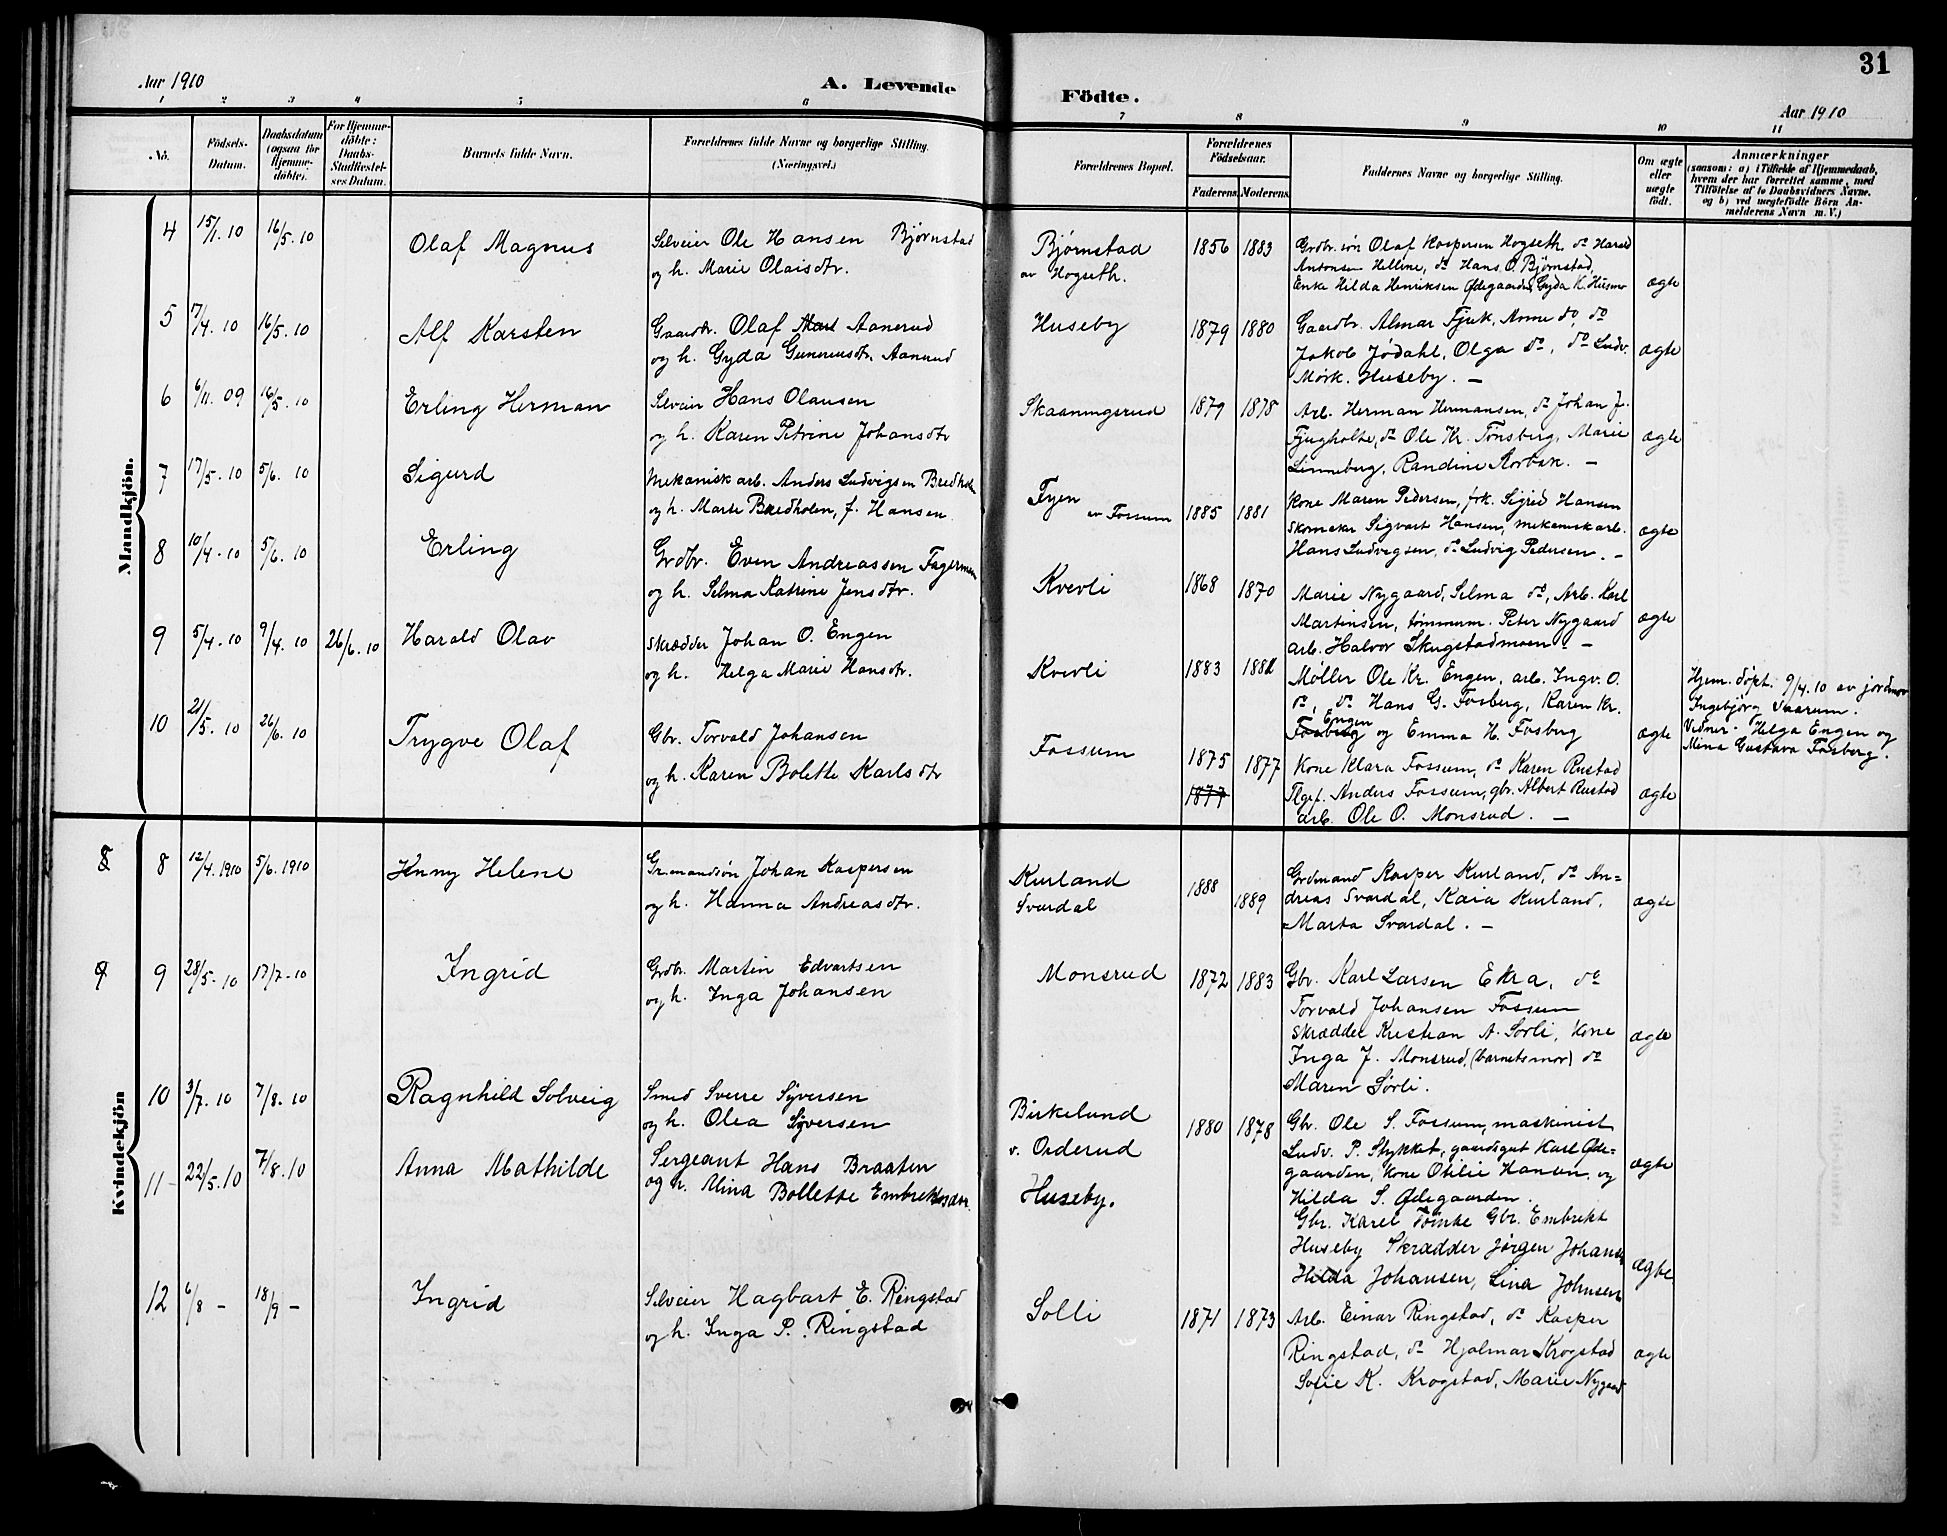 Aar 1910
A. Levende
Födte.
31
Aar 1910
1 2 3 4 5 6 7 8 9 10 11
No.
Födsels-
Datum.
Daabsdatum
(ogsaa for
Hjemme-
döbte).
For Hjemme-
döbte:
Daabs-
Stadfæstel-
ses Datum.
Barnets fulde Navn.
Forældrenes fulde Navne og borgerlige Stilling.
(Næringsvei.)
Forældrenes Bopæl.
Forældrenes
Födselsaar.
Faderens. Moderens.
Faddernes Navne og borgerlige Stilling.
Om ægte
eller
uægte
født.
Anmærkninger
(saasom: a) i Tilfælde af Hjemmedaab,
hvem der har forrettet samme, med
Tilföielse af to Daabsvidners Navne.
og b) ved uægtefödte Börn An-
melderens Navn m. V.)
Mandkjön.
4 15/1. 10 16/5. 10 Olaf Magnus
Selveier Ole Hansen Bjørnstad
og h. Marie Olaisdtr.
Bjørnstad
av Hogseth.
1856 1883
Grdbr. søn Olaf Kaspersen Hogseth, do Harald
Antonsen Hellene, do Hans O. Bjørnstad,
Enke Hilda Henriksen Ødegaarden, Gyda K. Husmo
ægte
5 7/4. 10 16/5. 10 Alf Karsten
Gaardbr. Olaf Aanerud
og h. Gyda Gunneriusdtr. Aanerud
Huseby
1879 1880
Gaardbr. Almar Fjuk, Anne do, do
Jakob Jødahl, Olga do, do Ludv.
Mørk. Huseby. —
ægte
6 6/11. 09 16/5. 10 Erling Herman
Selveier Hans Olausen
og h. Karen Petrine Johansdtr
Skaaningsrud
1879 1878
Arb. Herman Hermansen, do Johan J.
Fjugholte, do Ole Kr. Tønsberg, Marie
Linneberg, Randine Rorbæk. —
ægte
7 17/5. 10 5/6. 10 Sigurd
Mekanisk arb. Anders Ludvigsen Bredholen
og h. Marte Bredholen, f. Hansen
Fyen
av Fossum
1885 1881
Kone Maren Pedersen, frk. Sigrid Hansen
Skomaker Sigvart Hansen, mekanisk arb.
Hans Ludvigsen, do Ludvig Pedersen. —
ægte
8 10/4. 10 5/6. 10 Erling
Grdbr. Even Andreassen Fagermoen
og h. Selma Katrine Jensdtr.
Kverli
1868 1870
Marie Nygaard, Selma do, Arb. Karl
Martinsen, tømmerm. Peter Nygaard
arb. Halvor Skugstadmoen. —
ægte
9 5/4. 10 9/4. 10 26/6. 10 Harald Olav
Skrædder Johan O. Engen
og h. Helga Marie Hansdtr.
Kverli
1883 1882
Møller Ole Kr. Engen, arb. Ingv. O.
do, do Hans G. Fosberg, Karen Kr.
Engen
Fosberg og Emma H. Fosberg
ægte
Hjem. døpt. 9/4. 10 av jordmor
Ingebjörg Vaarum.
Vidner. Helga Engen og
Mina Gustava Fosberg.
10 21/5. 10 26/6. 10 Trygve Olaf
Gbr. Torvald Johansen
og h. Karen Bolette Karlsdtr
Fossum
1875 1877
1877
Kone Klara Fossum, do Karen Rustad
Tlgrf. Anders Fossum, gbr. Albert Rustad
arb. Ole O. Monsrud. —
ægte
Kvindekjön
8 8 12/4. 1910 5/6. 1910 Jenny Helene
Gr.mandsøn Johan Kaspersen
og h. Hanna Andreasdtr.
Kurland
Svardal
1888 1889
Grdmand Kasper Kurland, do An=
dreas Svardal, Kaia Kurland,
Marta Svardal. —
ægte
9 9 28/5. 10 17/7. 10 Ingrid
Grdbr. Martin Edvartsen
og h. Inga Johansen
Monsrud
1872 1883
Gbr. Karl Larsen Ekra, do
Torvald Johansen Fossum
Skrædder Kristian A. Sørli, Kone
Inga J. Monsrud, (barnets mor) do
Maren Sørli.
ægte
10 3/7. 10 7/8. 10 Ragnhild Solveig
Smed Sverre Syversen
og h. Olea Syversen
Birkelund
v. Orderud
1880 1878
Gbr. Ole S. Fossum, maskinist
Ludv. P. Stykket, gaardsgut Karl Øde=
gaarden, Kone Otilie Hansen, og
Hilda S. Ødegaarden.
ægte
11 22/5. 10 7/8. 10 Anna Mathilde
Sergeant Hans Braaten
og h. Mina Bollette Embrektsdatr.
Huseby.
Gbr. Karel Tomte Gbr. Embrekt
Huseby Skrædder Jørgen Johans
Hilda Johansen, Lina Johnsen
ægte
12 6/8 — 18/9 — Ingrid
Selveier Hagbart E. Ringstad
og h. Inga P. Ringstad
Solli
1871 1873
Arb. Einar Ringstad, do Kasper
Ringstad, do Hjalmar Krogstad
Sofie K. Krogstad, Marie Nygaard
ægte